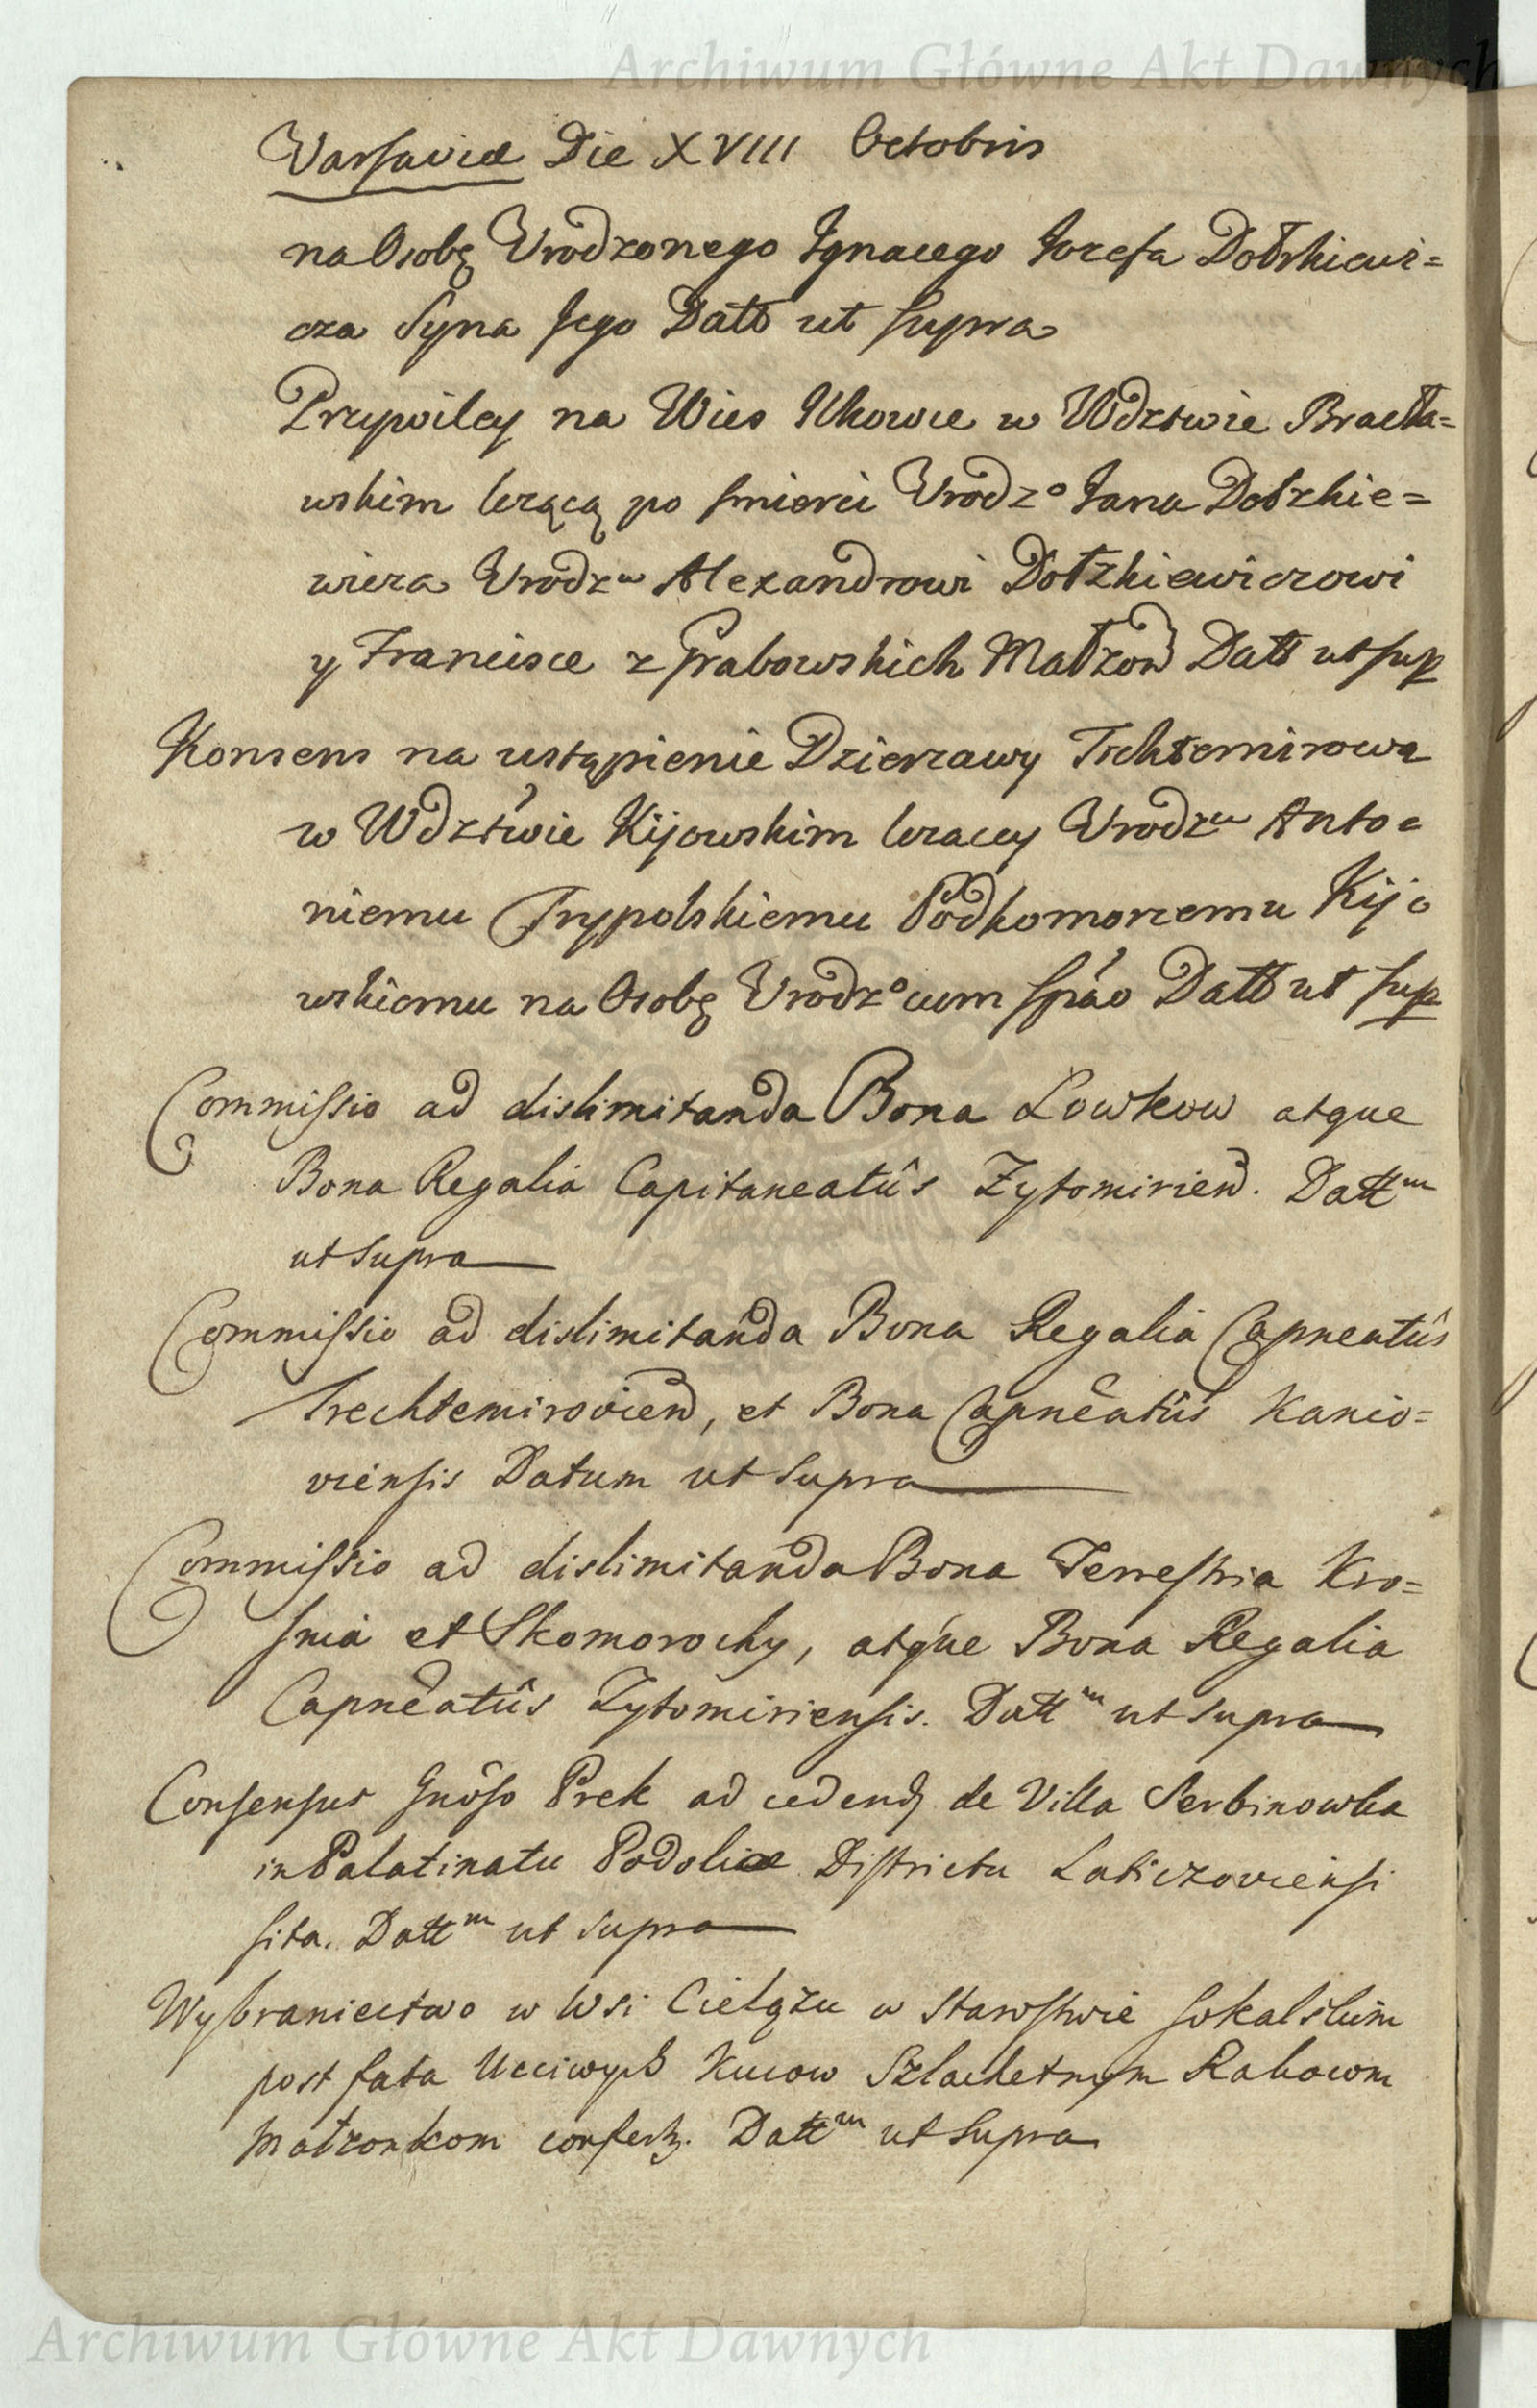 Archiwum Główne Akt Dawnych
Varsaviæ Die XVIII Octobris
na Osobę Urodzonego Ignacego Jozefa Dołskiewi=
cza Syna Jego Datt ut supra
Przywiley na Wies Ukowce w Wdztwie Bracła=
wskim lezącą po smierci Urodzo Jana Dołzkie=
wicza Urodzu Alexandrowi Dołzkiewiczowi
y Francisce z Grabowskich Małzon Datt ut sup
Konsens na ustąpienie Dzierzawy Trehtemirowa
w Wdztwie Kijowskim lezacey Urodzu Anto=
niemu Trypolskiemu Podkomorzemu Kijo
wskiemu na Osobę Urodzo cum spao Datt ut sup
Commissio ad dislimitanda Bona Lowkow atque
Bona Regalia Capitaneatûs Zytomirien. Dattm
ut supra
Commissio ad dislimitanda Bona Regalia Capneatûs
Trechtemirovien, et Bona Capneatûs Kanio=
viensis Datum ut supra
Commissio ad dislimitanda Bona Terrestria Kro=
snia et Skomorochy, atque Bona Regalia
Capneatûs Zytomiriensis. Dattm ut supra
Consensus Gnoso Prek ad cedend de Villa Serbinowka
in Palatinatu Podoliæ Districtu Laticzoviensi
sita. Dattm ut supra
Wybraniectwo w Wsi Cielążu w Starostwie Sokalskim
post fata Ucciwych Kucow Szlachetnym Rakowm
Małzonkom confert. Dattm ut supra
Archiwum Główne Akt Dawnych